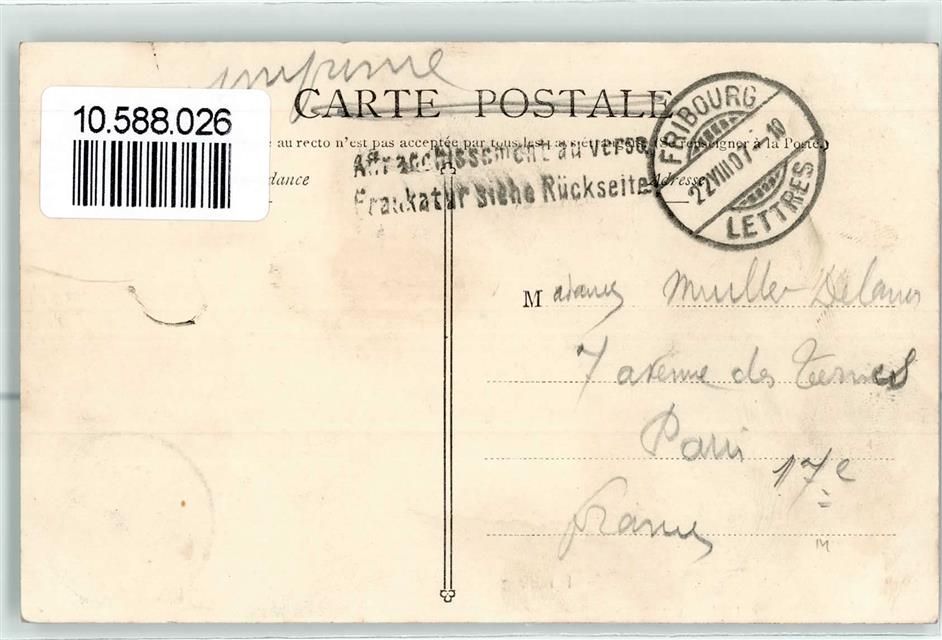 imprimé
CARTE POSTALE
10.588.026
e au recto n'est pas acceptée par tous les pays étrangers. (Se renseigner à la Poste.)
Affranchissement au verso.
Frankatur siehe Rückseite
dance
Adresse
FRIBOURG
22.VIII.07 - 10
LETTRES
Madame Muller
7 avenue des Ternes
Paris 17e
France